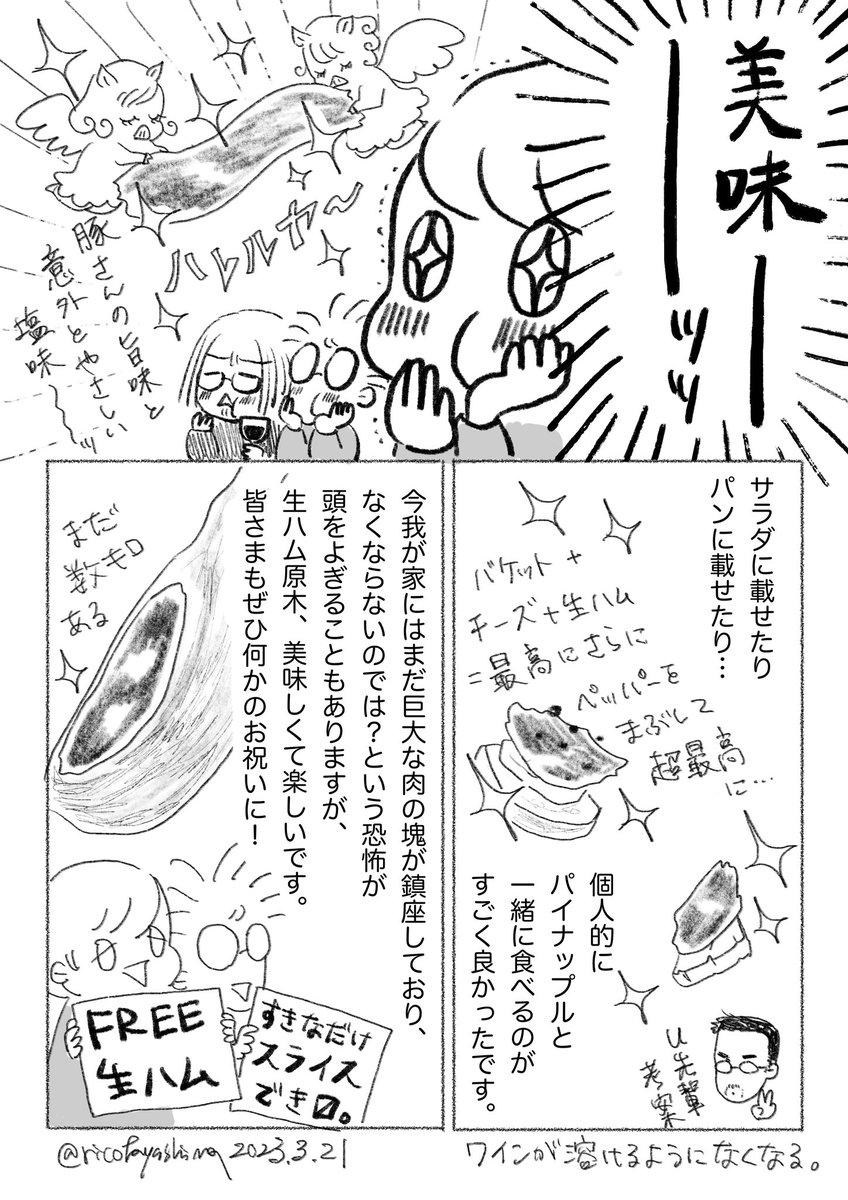 美味ーーッッ
ハレルヤ〜
豚さんの旨味と
意外とやさしい
塩味〜〜ッ
サラダに載せたり
パンに載せたり…
バケット+
チーズ+生ハム
=最高にさらに
ペッパーを
まぶして
超最高
に…
個人的に
パイナップルと
一緒に食べるのが
すごく良かったです。
U先輩
考案
ワインが溶けるようになくなる。
今我が家にはまだ巨大な肉の塊が鎮座しており、
なくならないのでは?という恐怖が
頭をよぎることもありますが、
生ハム原木、美味しくて楽しいです。
皆さまもぜひ何かのお祝いに!
まだ
数キロ
ある
FREE
生ハム
すきなだけ
スライス
でき〼。
2023.3.21